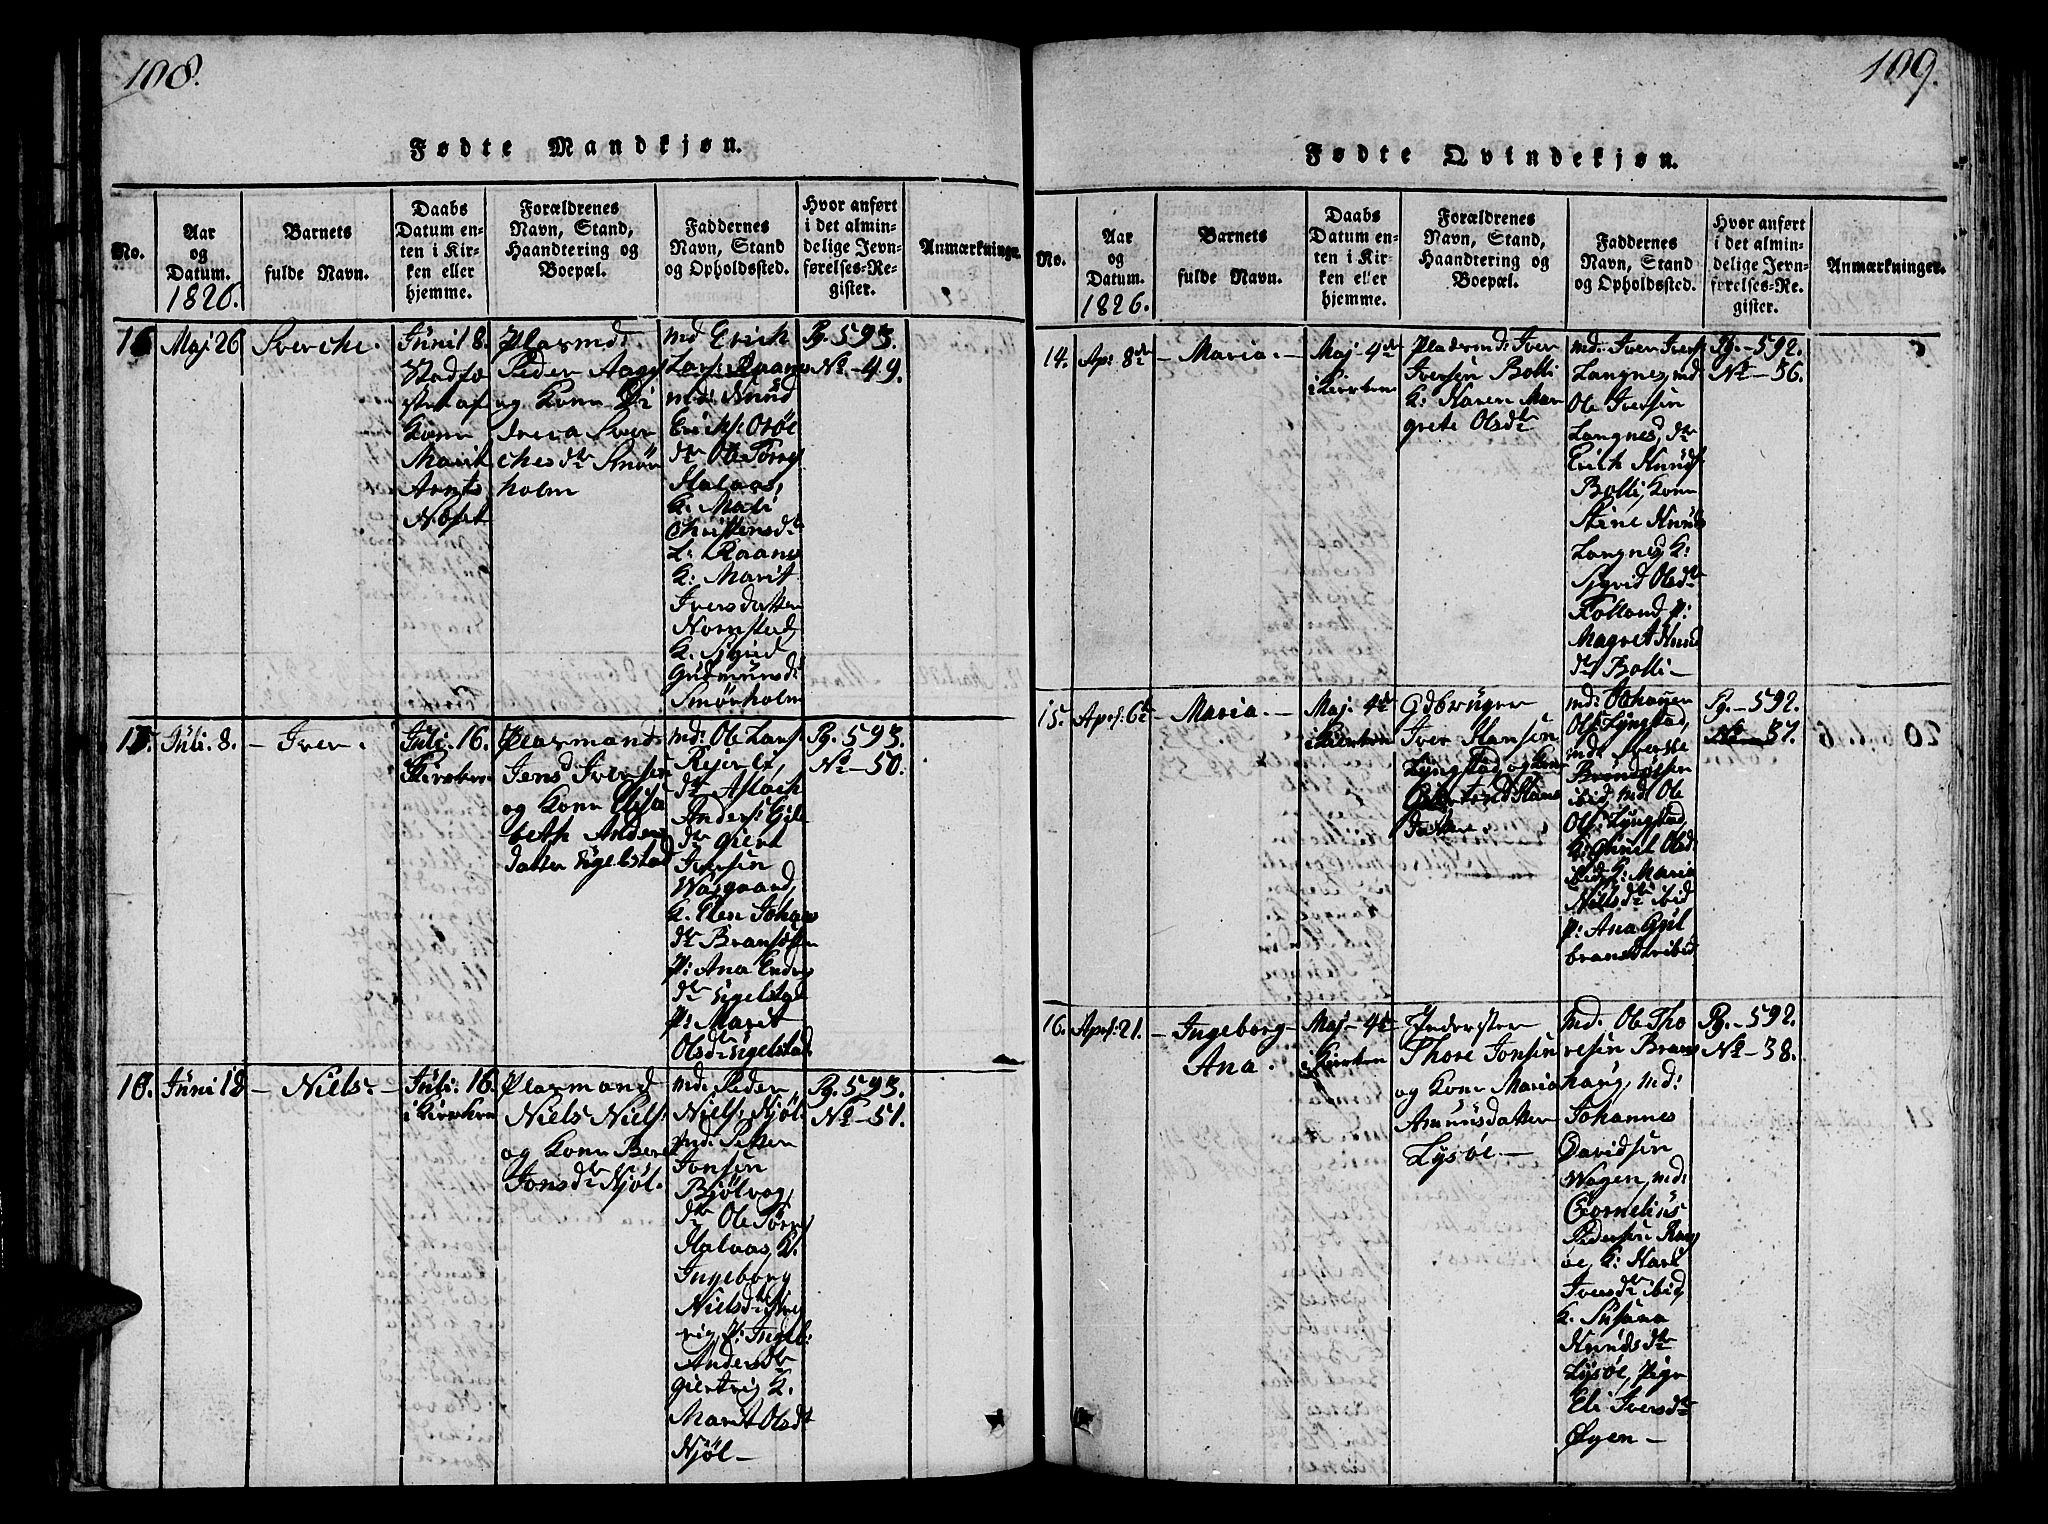 108.
Fødte Mandkjøn.
No.
Aar
og
Datum.
1826.
Barnets
fulde Navn.
Daabs
Datum en-
ten i Kir-
ken eller
hjemme.
Forældrenes
Navn, Stand,
Haandtering og
Boepæl.
Faddernes
Navn, Stand
og Opholdssted.
Hvor anført
i det almin-
delige Jevn-
førelses-Re-
gister.
Anmærkninger.
16
Maj 26
Sverche.
Juni 18.
Stadfæ
stet af
Kone
Marit
Arnts
Nøset
Plasmd:
Peder Aags
og Kone Di
drica Sver
chesdtr Smør
holm
md Erich
Lars: Raanes
md: Knud
Erichs: Orøe
dtr Ole Torrs
Halaas,
K. Mali
Christensdtr
L: Raanes
K: Marit
Iversdatter
Nornstad,
K. Sigrid
Gudmunsdtr
Smørholm
Pg. 593.
No – 49.
17.
Juli. 8.
– Iver.
Juli. 16.
i Kircken
Plasmand
Jens Iversen
og Kone Elisa
beth Anders
datter Ugelstad
md: Ole Lars:
Rejerli,
dtr Aslach
Anders: Gile
dtr Giert
Iversen
Waagaard,
K. Elen Johans
dtr Brandsten
P: Ana Endrs
dtr Ugelstad
P: Marit
Olsdtr Ugelstad
Pg. 593.
No – 50.
18.
Juni 18
– Niels –
Juli: 16.
i Kircken
Plasmand
Niels Niels:
og Kone Beret
Jonsdtr Njøl.
md: Peder
Niels: Njøl.
md: Petter
Jonsen
Bjølvog,
dtr Ole Torrs
Halaas, K.
Ingeborg
Nielsdtr
vig, P: Ingeb:
Andersdtr
Giertvig K.
Marit Olsdtr
Njøl –
Pg. 593.
No – 51.
109.
Fødte Qvindekjøn.
No.
Aar
og
Datum.
1826.
Barnets
fulde Navn.
Daabs
Datum en-
ten i Kir-
ken eller
hjemme.
Forældrenes
Navn, Stand,
Haandtering og
Boepæl.
Faddernes
Navn, Stand
og Opholdssted.
Hvor anført
i det almin-
delige Jevn-
førelses-Re-
gister.
Anmærkninger.
14.
Ap: 8de
– Maria. –
Maj – 4de
i Kircken
Pladsmd: Iver
Iversen Bolli
K: Karen Mar
grete Olsdtr
md: Iver Ivers:
Langnes, md
Ole Iversen
Langnes, dtr
Erich Knuds:
Bolli, Kone
Stine Knuds
Langnes, K:
Sigrid Olsdtr
Folland P:
Magret Knud
dtr Bolli –
Pg. – 592.
No – 36.
15.
Apr: 6te
– Maria. –
Maj – 4de
i Kircken
Gdbruger
Iver Hansen
Lyngstad, og Kone
Giertrud Hans
datter.
md: Johannes
Ols: Lyngstad,
md: Sverke
Brandsten
ibid, md: Ole
Ols: Lyngstad,
K: Gunil Olsd
ibid, K: Maria
Nielsdtr ibid
P: Ana Gul
bransdtr ibid
Pg. – 592.
No – 37.
16.
Apr: 21.
– Ingeborg –
Ana.
Maj – 4de
i Kircken
Inderster
Thore Jonsen
og Kone Maria
Amunsdatter
Lysøe. –
md: Ole Tho
resen Brans
haug, md:
Johannes
Davidsen
Wagen, md:
Cornelius
Pedersen Rang
øe, K: Kari
Iversdtr ibid,
K. Susana
Knudsdtr
Lysøe, Pige
Eli Iversdtr
Øygen –
Pg. – 592.
No – 38.